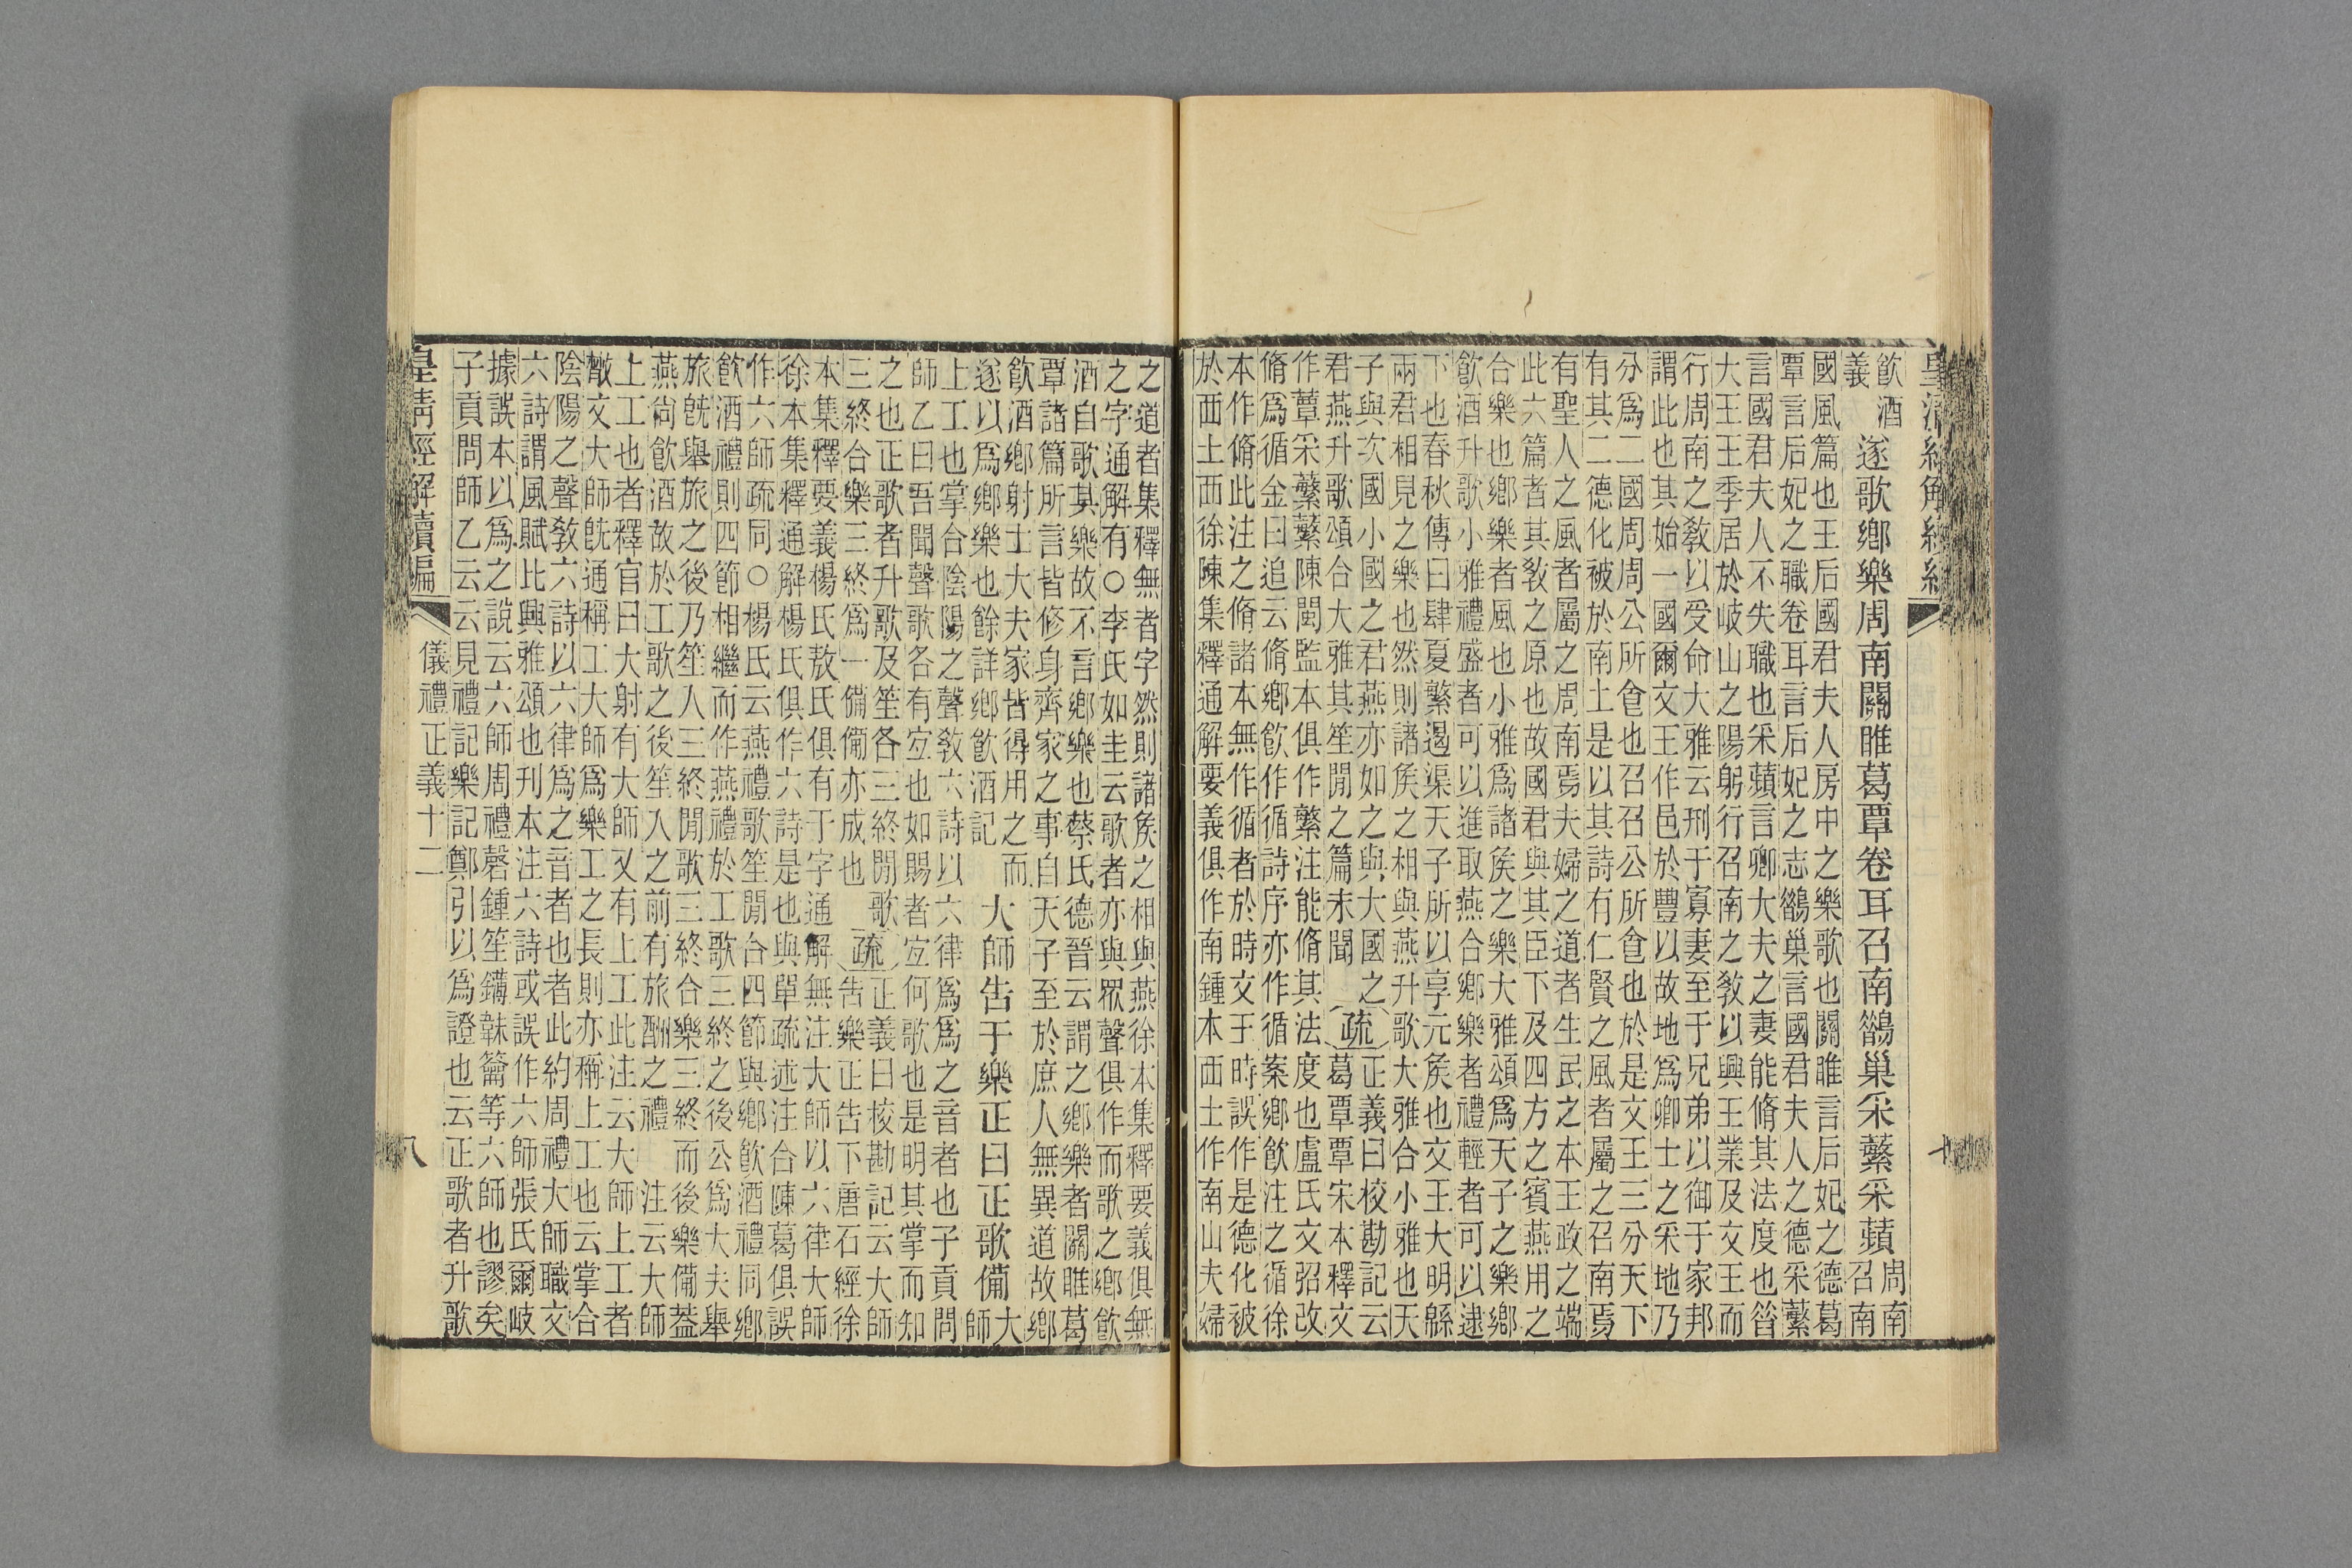 皇清經解續編
飲酒
義
遂歌鄉樂周南關雎葛覃卷耳召南鵲巢采蘩采蘋
周南
召南
國風篇也王后國君夫人房中之樂歌也關雎言后妃之德葛
覃言后妃之職卷耳言后妃之志鵲巢言國君夫人之德采蘩
言國君夫人不失職也采蘋言卿大夫之妻能脩其法度也昝
大王王季居於岐山之陽躬行召南之敎以興王業及文王而
行周南之敎以受命大雅云刑于寡妻至于兄弟以御于家邦
謂此也其始一國爾文王作邑於豐以故地爲卿士之采地乃
分爲二國周周公所食也召召公所食也於是文王三分天下
有其二德化被於南土是以其詩有仁賢之風者屬之召南焉
有聖人之風者屬之周南焉夫婦之道者生民之本王政之端
此六篇者其敎之原也故國君與其臣下及四方之賓燕用之
合樂也鄉樂者風也小雅爲諸矦之樂大雅頌爲天子之樂鄉
飲酒升歌小雅禮盛者可以進取燕合鄉樂者禮輕者可以逮
下也春秋傳曰肆夏繁遏渠天子所以享元矦也文王大明緜
兩君相見之樂也然則諸矦之相與燕升歌大雅合小雅也天
子與次國小國之君燕亦如之與大國之
君燕升歌頌合大雅其笙閒之篇未聞
疏
正義曰校勘記云
葛覃覃宋本釋文
作蕈采蘩蘩陳閩監本俱作繁注能脩其法度也盧氏文弨改
脩爲循金曰追云脩鄉飲作循詩序亦作循案鄉飲注之循徐
本作脩此注之脩諸本無作循者於時文王時誤作是德化被
於西土西徐陳集釋通解要義俱作南鍾本西土作南山夫婦
之道者集釋無者字然則諸矦之相與燕徐本集釋要義俱無
之字通解有○李氏如圭云歌者亦與眾聲俱作而歌之鄉飲
酒自歌其樂故不言鄉樂也蔡氏德晉云謂之鄉樂者關雎葛
覃諸篇所言皆修身齊家之事自天子至於庶人無異道故鄉
飲酒鄉射士大夫家皆得用之而
遂以爲鄉樂也餘詳鄉飲酒記
大師告于樂正曰正歌備
大
師
上工也掌合陰陽之聲敎六詩以六律爲之音者也子貢問
師乙曰吾聞聲歌各有宜也如賜者宜何歌也是明其掌而知
之也正歌者升歌及笙各三終閒歌
三終合樂三終爲一備備亦成也
疏
正義曰校勘記云大師
告樂正告下唐石經徐
本集釋要義楊氏敖氏俱有于字通解無注大師以六律大師
徐本集釋通解楊氏俱作六詩是也與單疏述注合陳葛俱誤
作六師疏同○楊氏云燕禮歌笙閒合四節與鄉飲酒禮同鄉
飲酒禮則四節相繼而作燕禮於工歌三終之後公爲大夫舉
旅旣舉旅之後乃笙人三終閒歌三終合樂三終而後樂備蓋
燕尚飲酒故於工歌之後笙入之前有旅酬之禮 注云大師
上工也者釋官曰大射有大師又有上工此注云大師上工者
散文大師旣通稱工大師爲樂工之長則亦稱上工也云掌合
陰陽之聲敎六詩以六律爲之音者也者此約周禮大師職文
六詩謂風賦比興雅頌也刊本注六詩或誤作六師張氏爾岐
據誤本以爲之說云六師周禮磬鍾笙鎛韎籥等六師也謬矣
子貢問師乙云云見禮記樂記鄭引以爲證也云正歌者升歌
皇清經解續編 儀禮正義十二 八